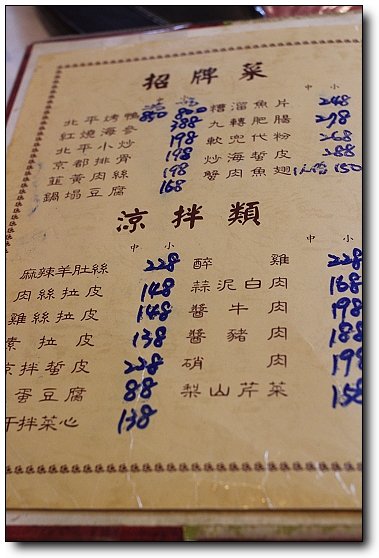 招牌菜
中 小
北平烤鴨 850 800
紅燒海參 388
北平小炒 198
京都排骨 198
韮黃肉絲 198
鍋塌豆腐 168
中 小
糟溜魚片 248
九轉肥腸 278
軟兜代粉 268
炒海蜇皮 388
蟹肉魚翅 150
涼拌類
中 小
麻辣羊肚絲 228
肉絲拉皮 148
雞絲拉皮 148
素拉皮 138
涼拌蜇皮 228
蛋豆腐 88
干拌菜心 138
中 小
醉雞 228
蒜泥白肉 168
醬牛肉 198
醬豬肉 188
硝肉 198
梨山芹菜 158